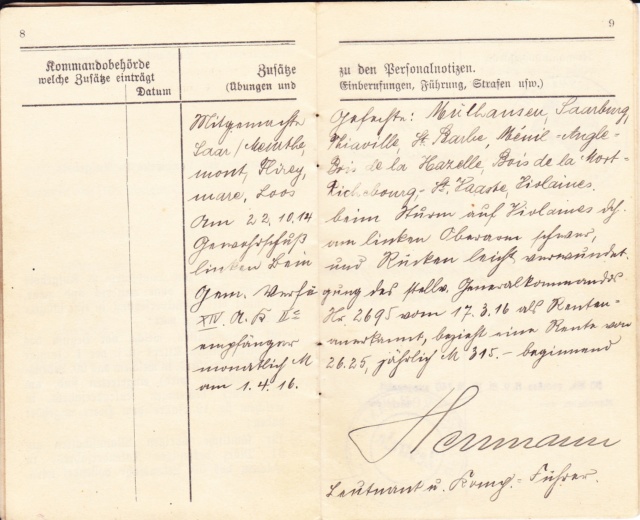 8
9
Kommandobehörde
welche Zusätze einträgt
Datum
Zusätze
(Übungen und
zu den Personalnotizen.
Einberufungen, Führung, Strafen usw.)
Mitgemachte Gefechte: Mülhausen, Saarburg,
Saar/Meurthe, Thiaville, St. Barbe, Ménil-Angle-
mont, Flirey, Bois de la Hazelle, Bois de la Mort-
mare, Loos Richebourg, St. Vaaste, Violaines.
Am 22.10.14 beim Sturm auf Violaines dch.
Gewehrschuß am linken Oberarm schwer,
linken Bein und Rücken leicht verwundet.
Gem. Verfügung des stellv. Generalkommandos
XIV. A. K. Nr. 2695 vom 17.3.16 als Renten-
empfänger anerkannt, bezieht eine Rente von
monatlich M 26.25, jährlich M 315.- beginnend
am 1.4.16.
Herrmann
Leutnant u. Komp.-Führer.